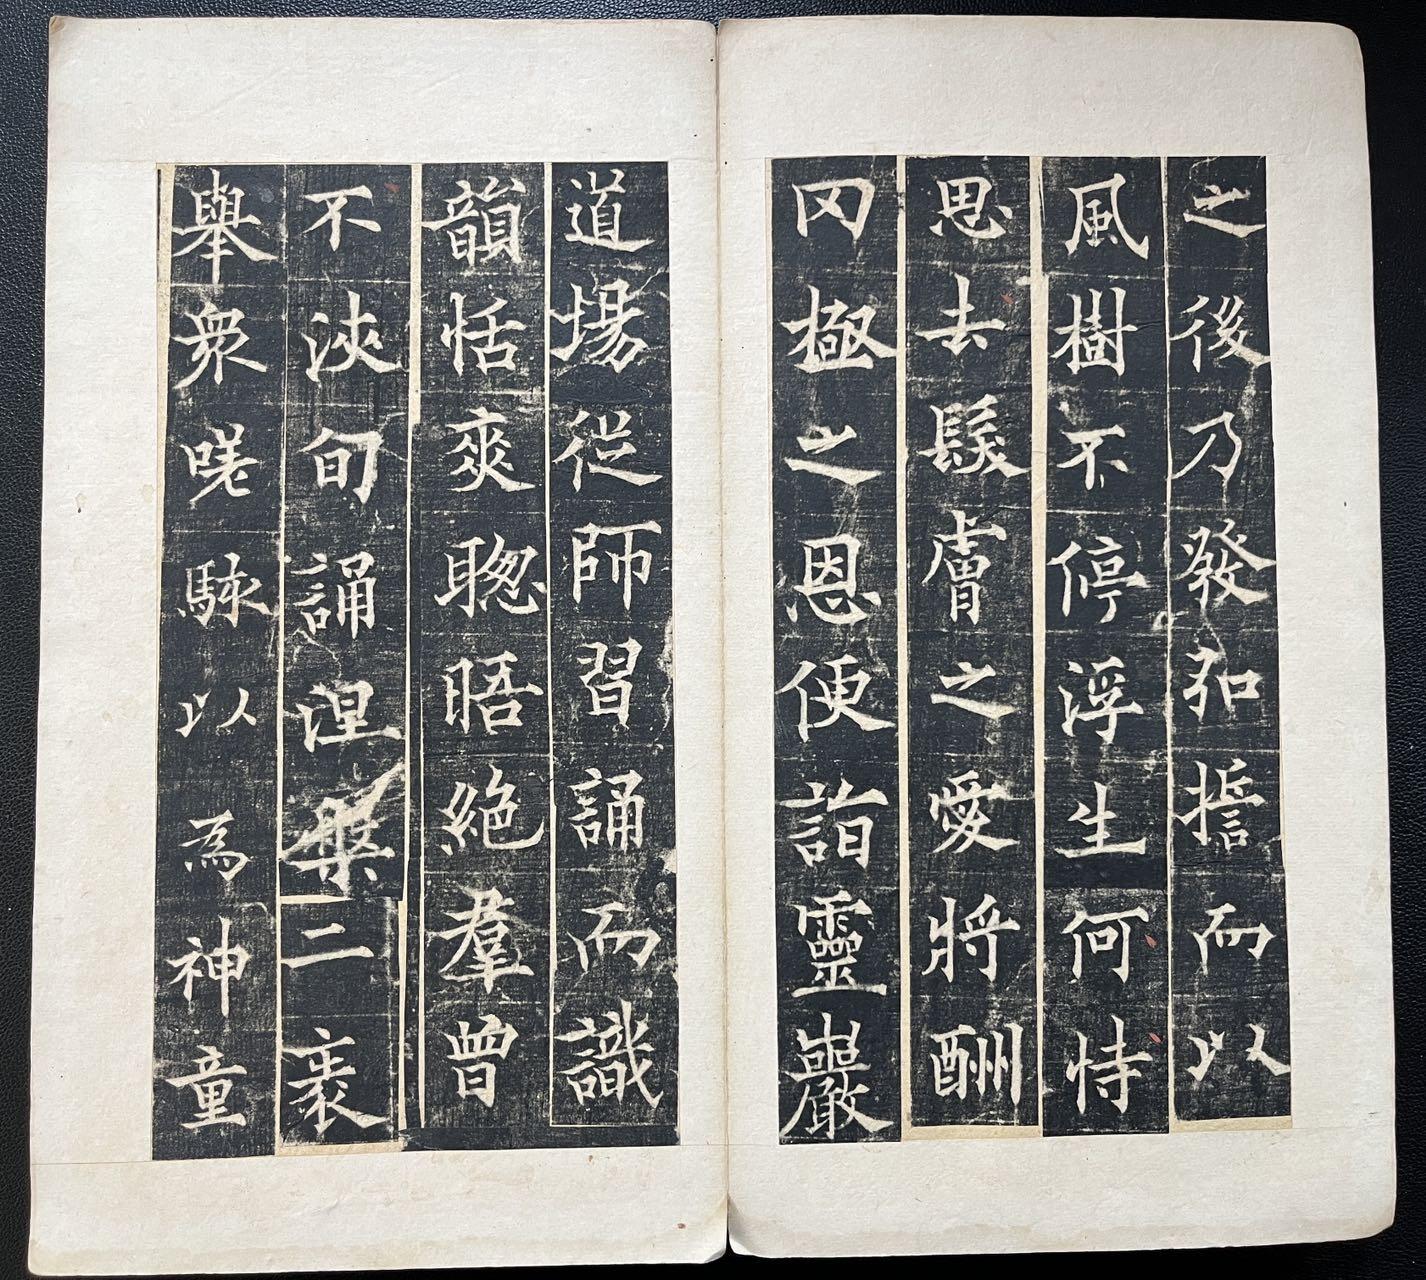 之後乃發弘擔而以
風樹不停浮生何恃
思去髮膚之愛將酬
罔極之恩便詣靈巖
道場從師習誦而識
韻恬爽聦晤絶羣曾
不浹旬誦涅槃二袠
舉衆嗟駭以為神童